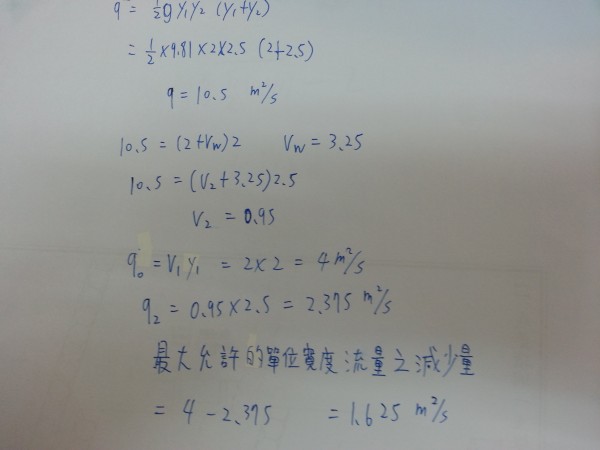 q² = ½g y₁y₂ (y₁+y₂)
= ½×9.81×2×2.5 (2+2.5)
q = 10.5 m²/s
10.5 = (2+Vw)2 Vw = 3.25
10.5 = (V₂+3.25)2.5
V₂ = 0.95
q₀ = V₁y₁ = 2×2 = 4 m²/s
q₂ = 0.95×2.5 = 2.375 m²/s
最大允許的單位寬度流量之減少量
= 4 - 2.375 = 1.625 m²/s